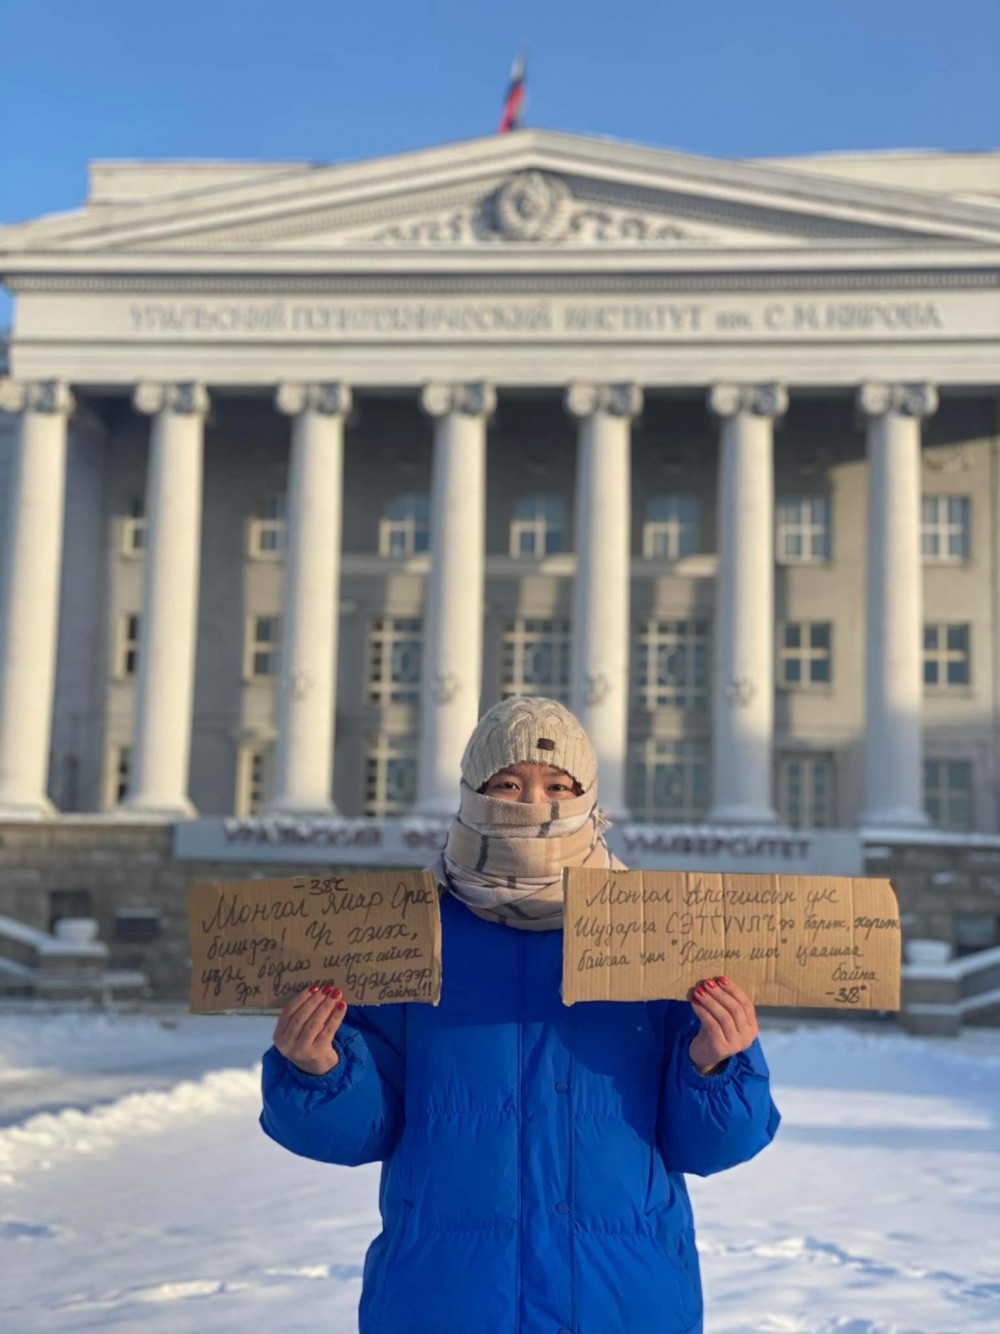 УРАЛЬСКИЙ ПОЛИТЕХНИЧЕСКИЙ ИНСТИТУТ им. С.М.КИРОВА
УРАЛЬСКИЙ УНИВЕРСИТЕТ
-38°C
Монгол Ямар Орос
бишдээ! Үр хэлх,
үзэл бодлоо илэрхийлэх
Эрх чөлөөгөө эдэлмээр
байна!!
Монгол Ардчилсан улс
Шударга СЭТГҮҮЛЧээ барьж, хорьж
байгаа чин "Гоцын шог" цаашаа
байна
-38°